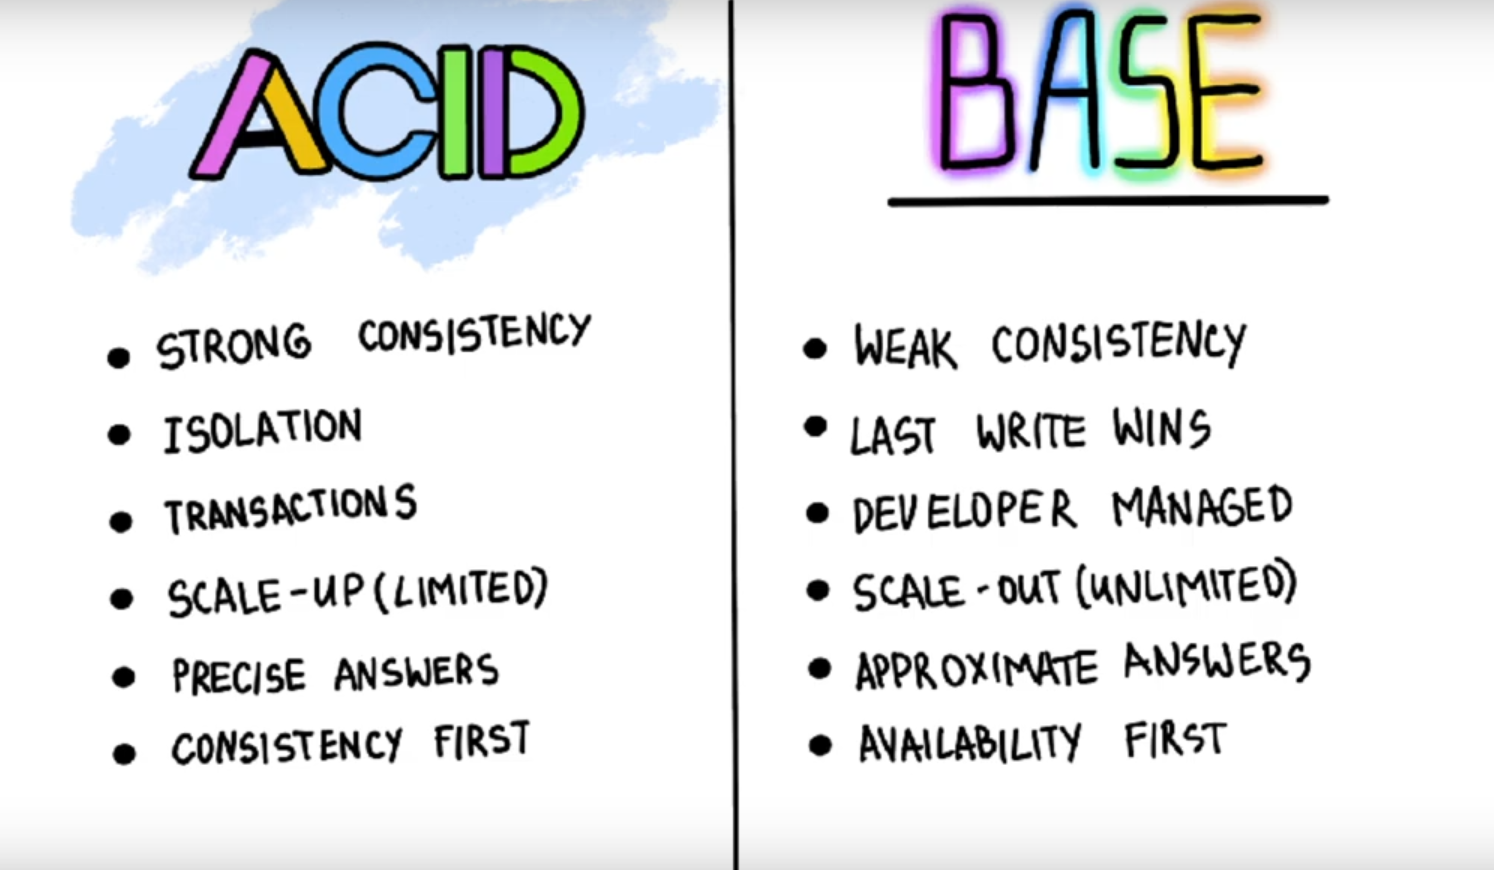 ACID
STRONG CONSISTENCY
ISOLATION
TRANSACTIONS
SCALE-UP (LIMITED)
PRECISE ANSWERS
CONSISTENCY FIRST
BASE
WEAK CONSISTENCY
LAST WRITE WINS
DEVELOPER MANAGED
SCALE-OUT (UNLIMITED)
APPROXIMATE ANSWERS
AVAILABILITY FIRST